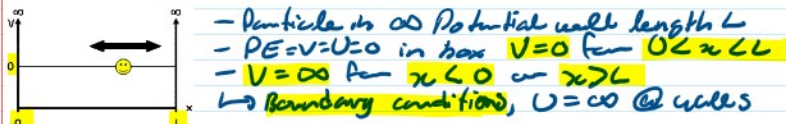 ∞ ∞
V
- Particle in ∞ Potential well length L
- PE=V=U=0 in box V=0 for 0<x<L
0
- V=∞ for x<0 or x>L
x
↳ Boundary conditions, U=∞ @ walls
0 L